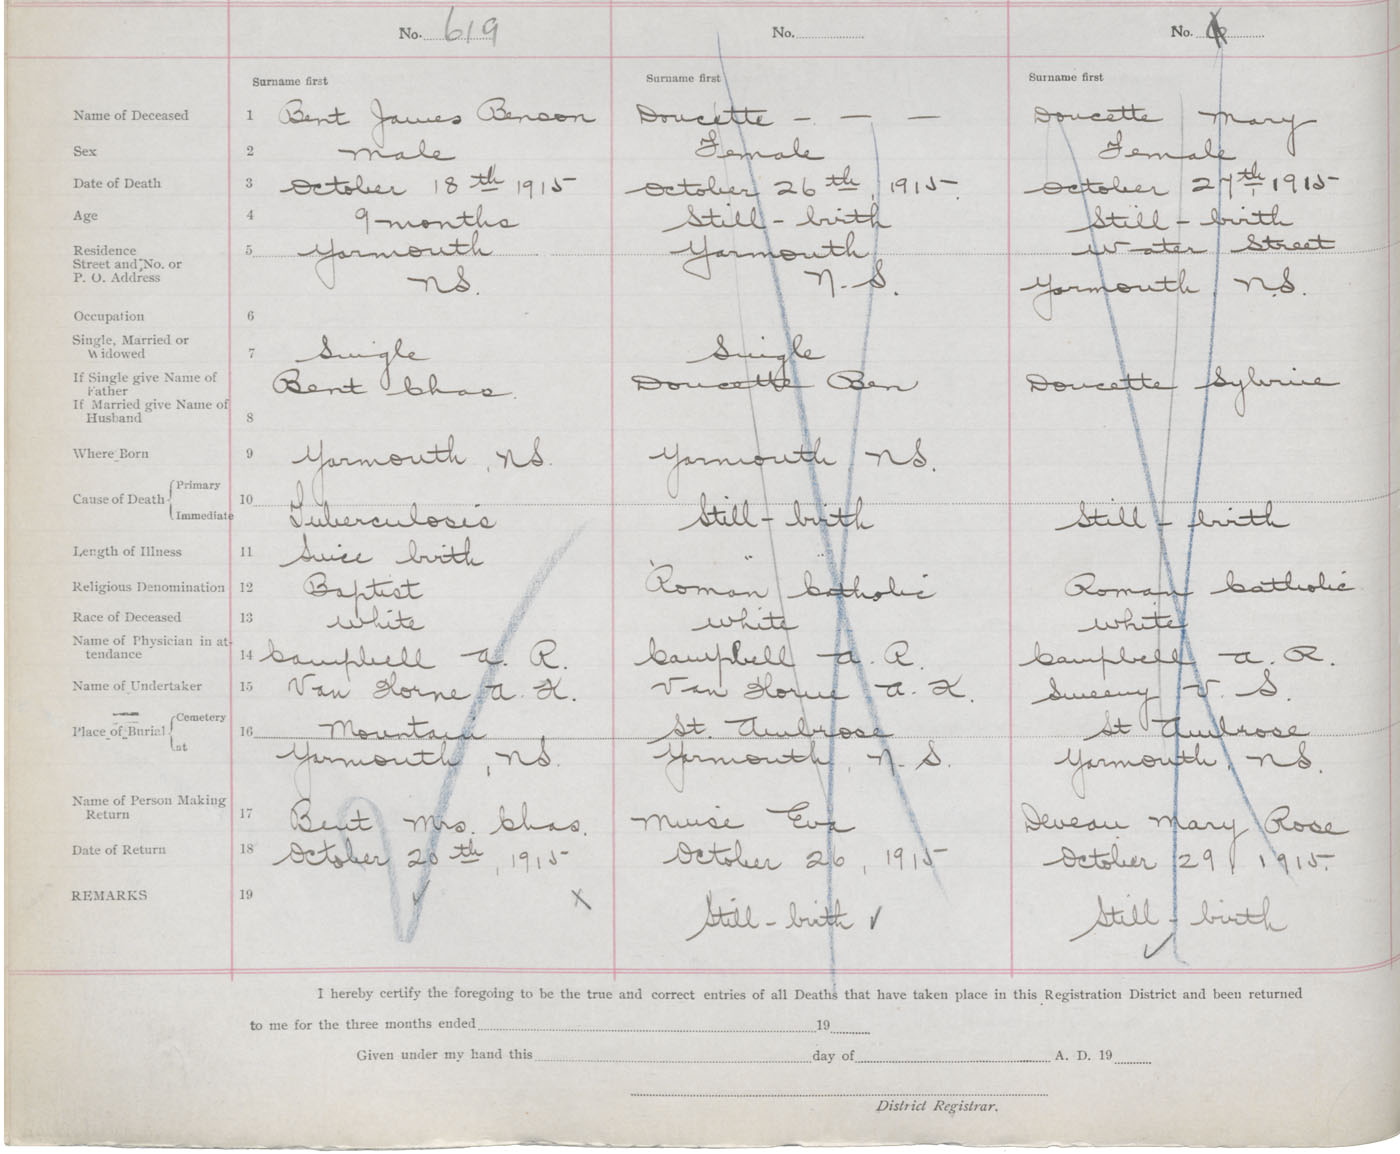 No. 619 No. No.
Surname first Surname first Surname first
Name of Deceased 1 Bent James Benson Doucette - - - Doucette Mary
Sex 2 male Female Female
Date of Death 3 October 18th 1915 October 26th, 1915. October 27th, 1915
Age 4 9 months Still-birth Still-birth
Residence 5 Yarmouth Yarmouth Water Street
Street and No. or
P. O. Address NS. N.S. Yarmouth, N.S.
Occupation 6
Single, Married or
Widowed 7 Single Single
If Single give Name of
Father Bent Chas. Doucette Ben Doucette
If Married give Name of
Husband 8
Where Born 9 Yarmouth, NS. Yarmouth NS.
Cause of Death Primary 10
Immediate Tuberculosis Still-birth Still-birth
Length of Illness 11 Since birth
Religious Denomination 12 Baptist Roman Catholic Roman Catholic
Race of Deceased 13 white white white
Name of Physician in at-
tendance 14 Campbell A. R. Campbell A. R. Campbell A. R.
Name of Undertaker 15 Van Horne A. K. Van Horne A. K. Sweeny V. S.
Place of Burial Cemetery 16 Mountain St. Ambrose St Ambrose
at Yarmouth, NS. Yarmouth, N.S. Yarmouth, NS.
Name of Person Making
Return 17 Bent Mrs. Chas. Muise Eva Deveau Mary Rose
Date of Return 18 October 20th, 1915 October 26, 1915 October 29, 1915.
REMARKS 19 X Still-birth ✓ Still-birth ✓
I hereby certify the foregoing to be the true and correct entries of all Deaths that have taken place in this Registration District and been returned
to me for the three months ended 19
Given under my hand this day of A. D. 19
District Registrar.